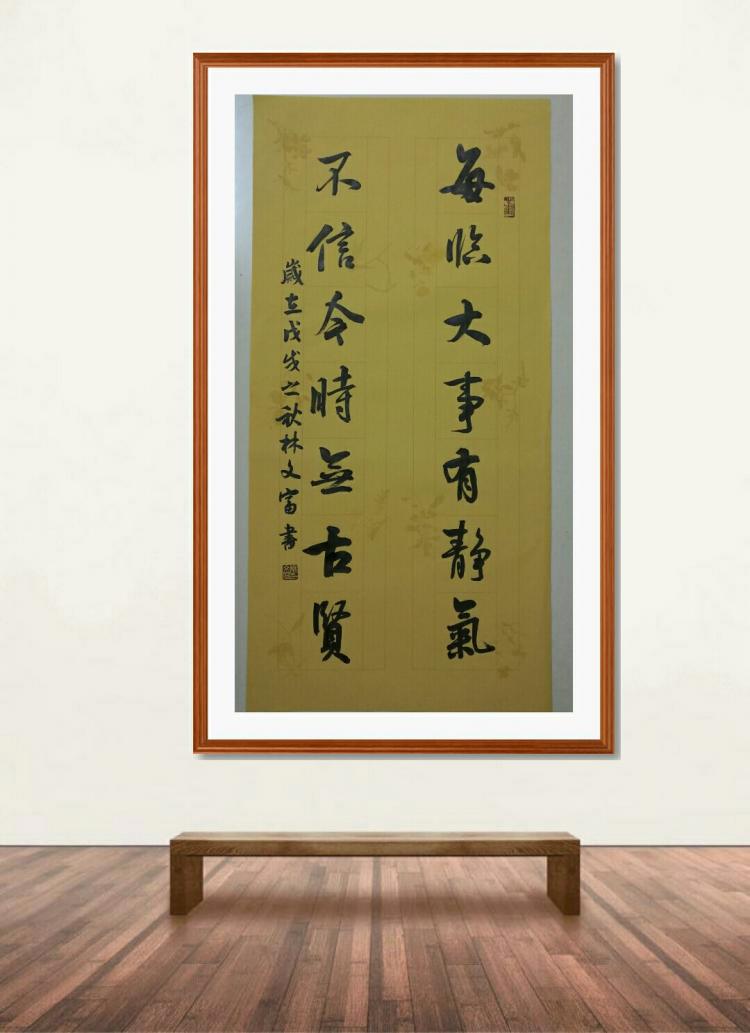 每临大事有静氣
不信今時無古賢
歲在戊戌之秋林文富書